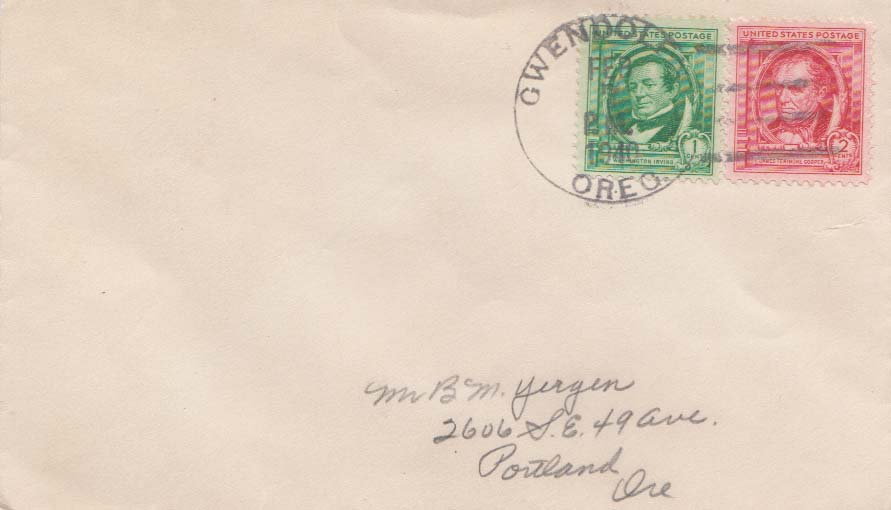 GWENDOLEN
FEB
1940
OREG.
UNITED STATES POSTAGE
1
CENT
WASHINGTON IRVING
UNITED STATES POSTAGE
2
CENTS
JAMES FENIMORE COOPER
Mr B. M. Yergen
2606 S.E. 49 Ave.
Portland
Ore